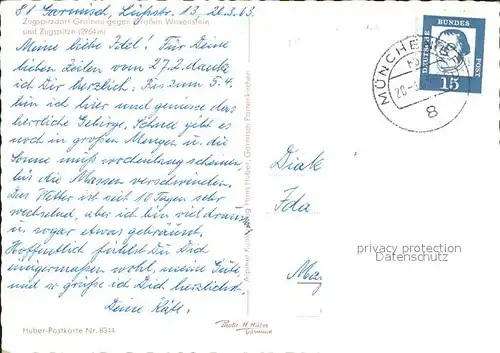 81 Garmisch, Lüßstr. 13, 26.3.63
Zugspitzdorf Grainau gegen Großen Waxenstein
und Zugspitze (2964m)
Meine liebe Idel! Für Deine
lieben Zeilen vom 27.2. danke
ich Dir herzlich. Bis zum 5.4.
bin ich hier und geniesse das
herrliche Gebirge. Schnee gibt es
noch in großen Mengen u. die
Sonne muß wochenlang scheinen
bis die Massen verschwinden.
Das Wetter ist seit 10 Tagen sehr
wechselnd, aber ich bin viel draußen
u. sogar etwas gebräunt.
Hoffentlich fühlst Du Dich
einigermaßen wohl, meine Gute
und so grüße ich Dich herzlichst
Deine Käte.
Huber-Postkarte Nr. 8314
Photo H. Huber
Garmisch
Alpiner Kunstverlag Hans Huber, Garmisch-Partenkirchen
MÜNCHEN
8
DEUTSCHE BUNDESPOST
15
Diak
Ida
privacy protection
Datenschutz
Ma